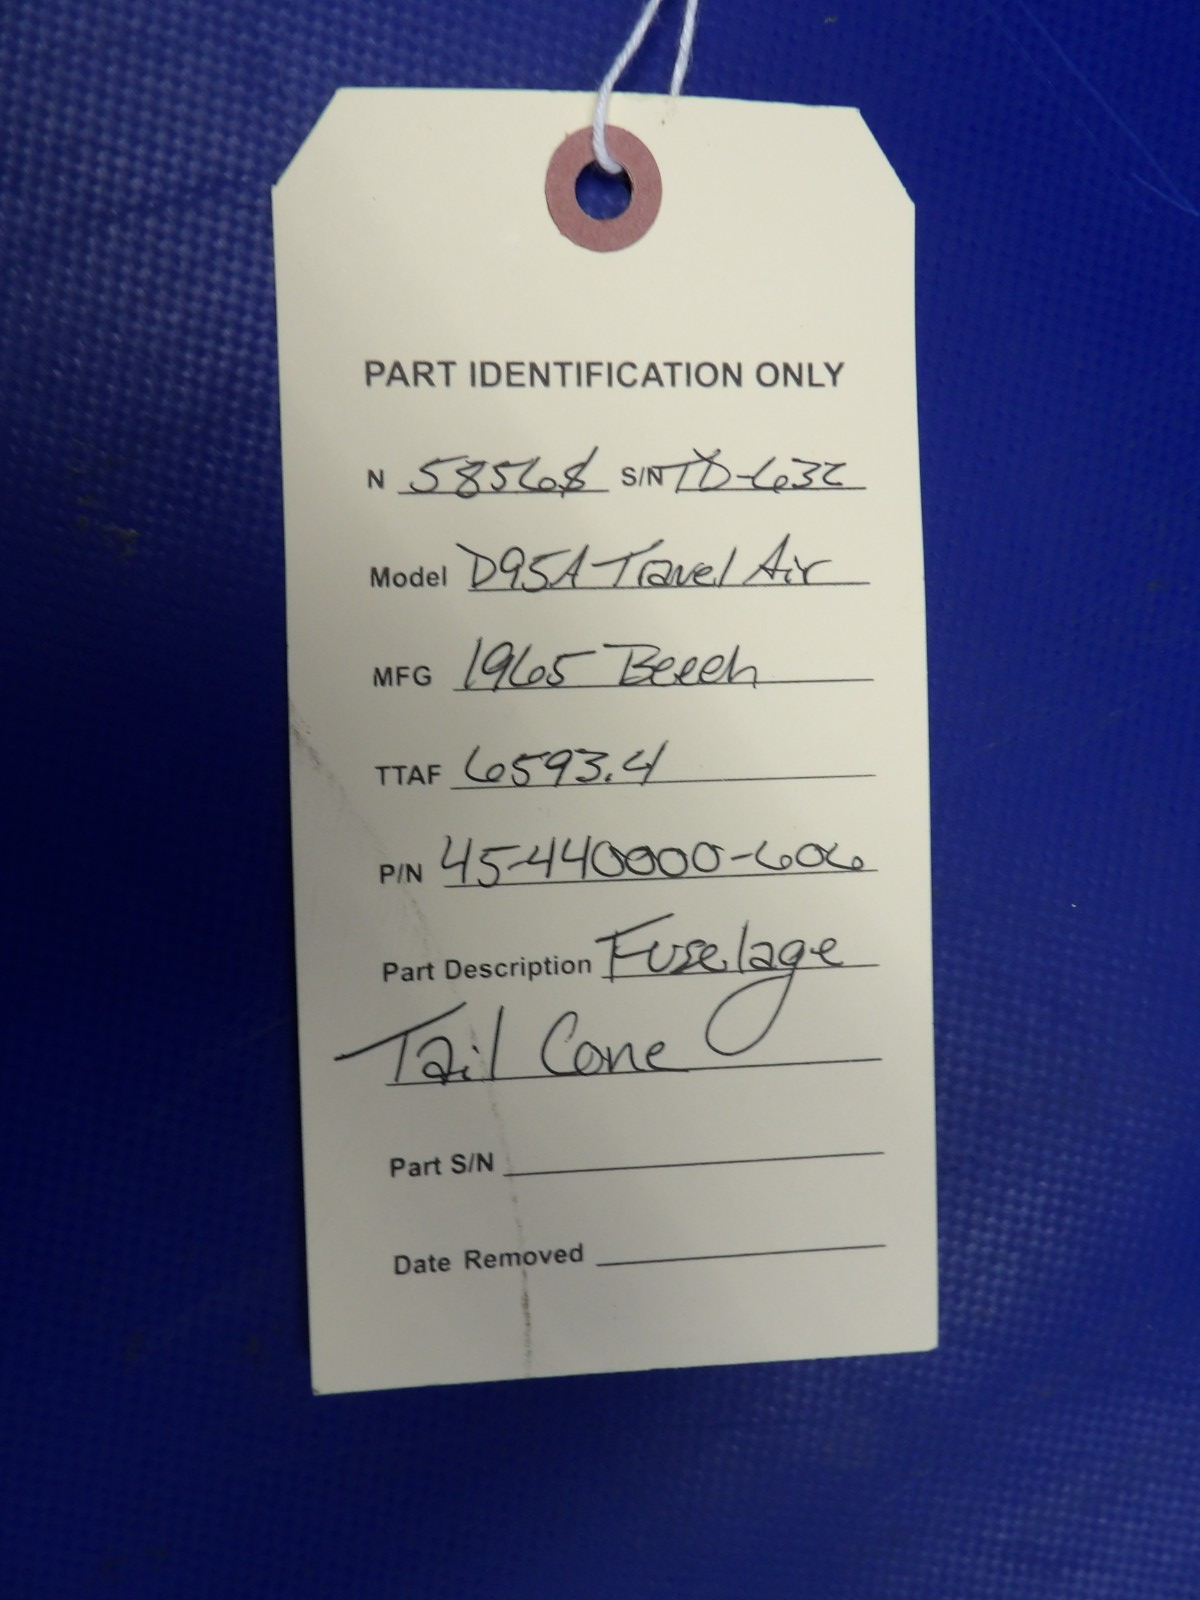 PART IDENTIFICATION ONLY
N 5856S S/N TD-632
Model D95A Travel Air
MFG 1965 Beech
TTAF 6593.4
P/N 45-440000-606
Part Description Fuselage
Tail Cone
Part S/N
Date Removed